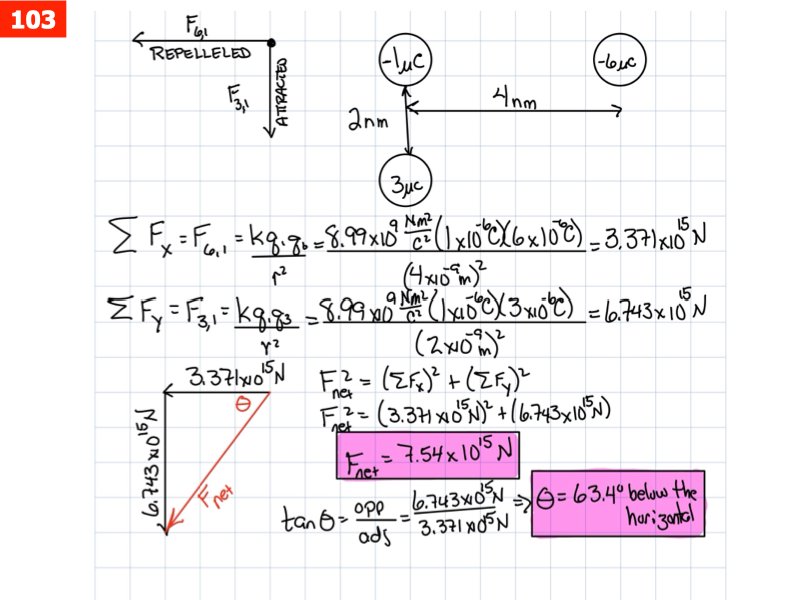 103
F6,1
REPELLELED
F3,1
ATTRACTED
-1μC
-6μC
4nm
2nm
3μC
∑ Fx = F6,1 = kq1q6/r² = 8.99x10⁹ Nm²/C² (1x10⁻⁶C)(6x10⁻⁶C)/(4x10⁻⁹m)² = 3.371x10¹⁵ N
∑ Fy = F3,1 = kq1q3/r² = 8.99x10⁹ Nm²/C² (1x10⁻⁶C)(3x10⁻⁶C)/(2x10⁻⁹m)² = 6.743x10¹⁵ N
3.371x10¹⁵N
θ
6.743x10¹⁵N
Fnet
Fnet² = (∑Fx)² + (∑Fy)²
Fnet² = (3.371x10¹⁵N)² + (6.743x10¹⁵N)
Fnet = 7.54x10¹⁵ N
tanθ = opp/adj = 6.743x10¹⁵N/3.371x10¹⁵N ⇒
θ = 63.4° below the
horizontal